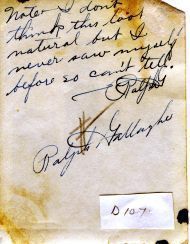 Note - I don't
think this looks
natural but I
never saw myself
before so can't tell.
- Ralph
Ralph Gallagher
D 107